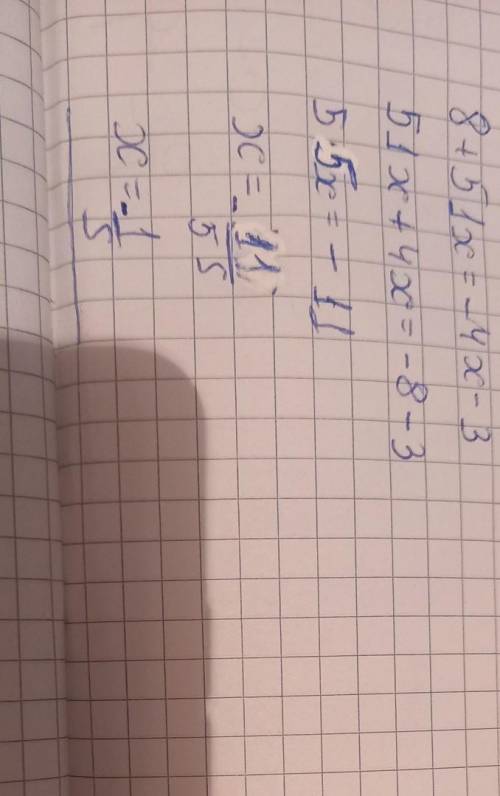 8 + 51x = -4x - 3
51x + 4x = -8 - 3
55x = -11
x = -11/55
x = -1/5